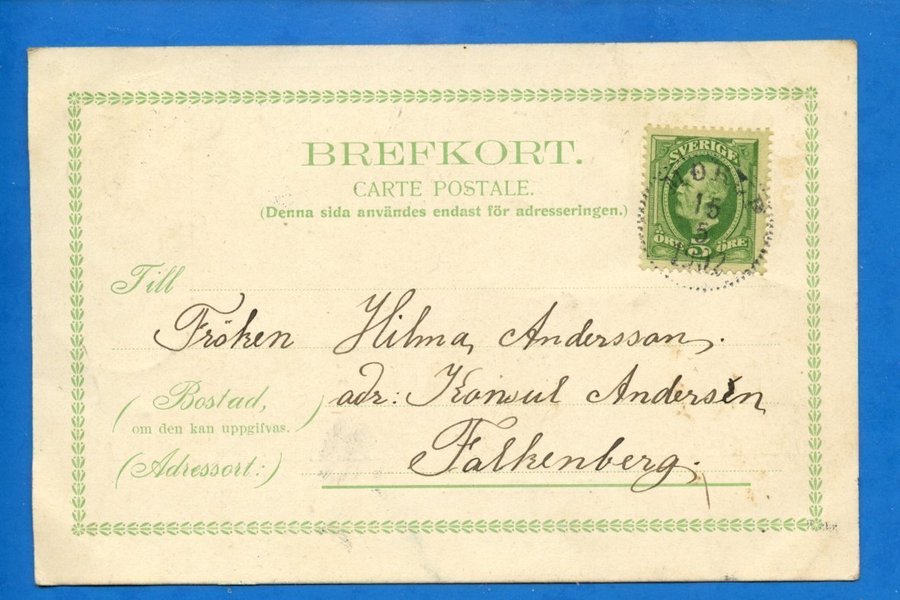 BREFKORT.
CARTE POSTALE.
(Denna sida användes endast för adresseringen.)
SVERIGE
15
5
1902
ÖRE 5 ÖRE
Till
Fröken Hilma Andersson.
(Bostad,) adr: Konsul Andersén
om den kan uppgifvas.
(Adressort:) Falkenberg.